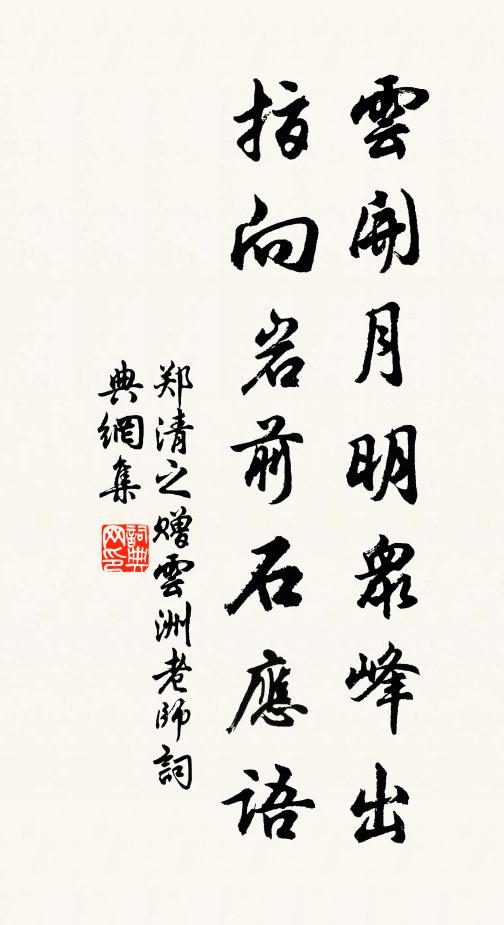 雲開月明衆峰出
指向岩前石應語
郑清之赠雲洲老師詞
典網集
詞典網印